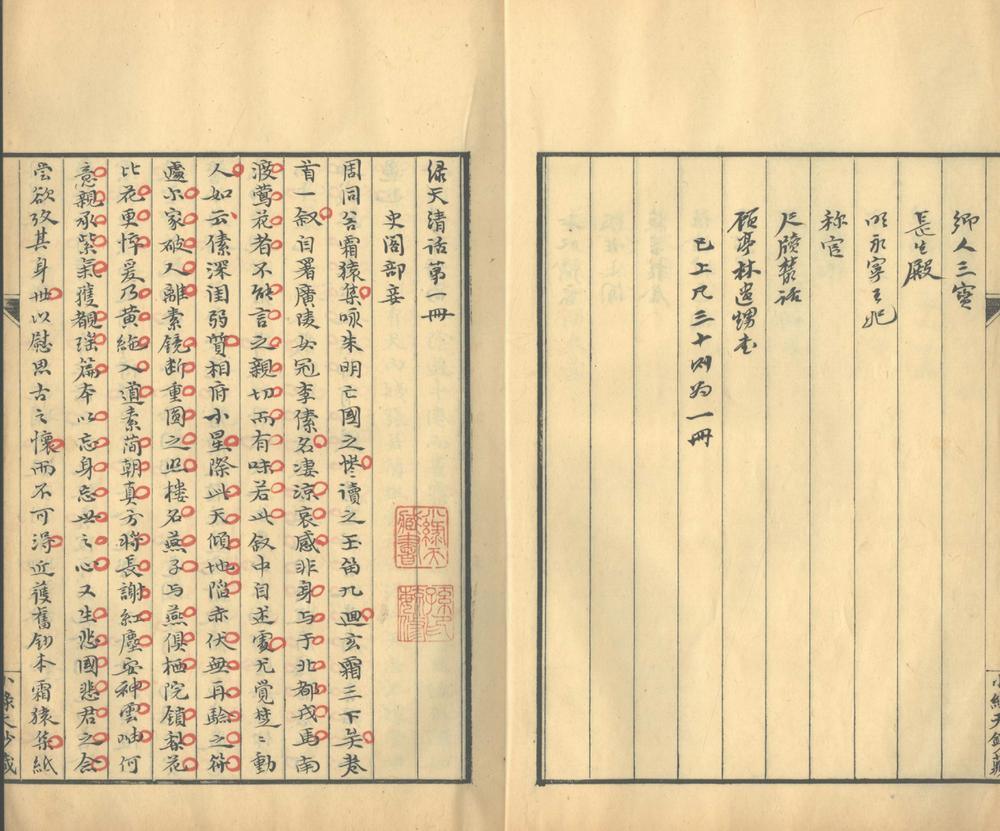 鄉人三寶
長生殿
明永寧王妃
稗官
尺牘叢話
顧亭林遺甥書
已上凡三十則為一冊
綠天清話第一冊
史閣部妾
周同谷霜猿集咏朱明亡國之慘讀之玉笛九迴玄霜三下矣巻
首一叙自署廣陵女冠李傃名凄涼哀感非身与于北都戎馬南
渡鶯花者不能言之親切而有味若此叙中自述處尤覺楚〻動
人如云傃深闺弱質相府小星際此天傾地陷亦伏無再驗之符
遽尔家破人離素鏡断重圆之照樓名燕子与燕俱栖院鎖梨花
比花更悴爰乃黄絁入道素简朝真方將長謝紅塵安神雲岫何
意親承紫氣獲覩瑶篇本以忘身忘世之心又生悲國悲君之念
嘗欲攷其身世以慰思古之懷而不可得近獲舊鈔本霜猿集紙
小綠天
藏書
小綠天鈔藏